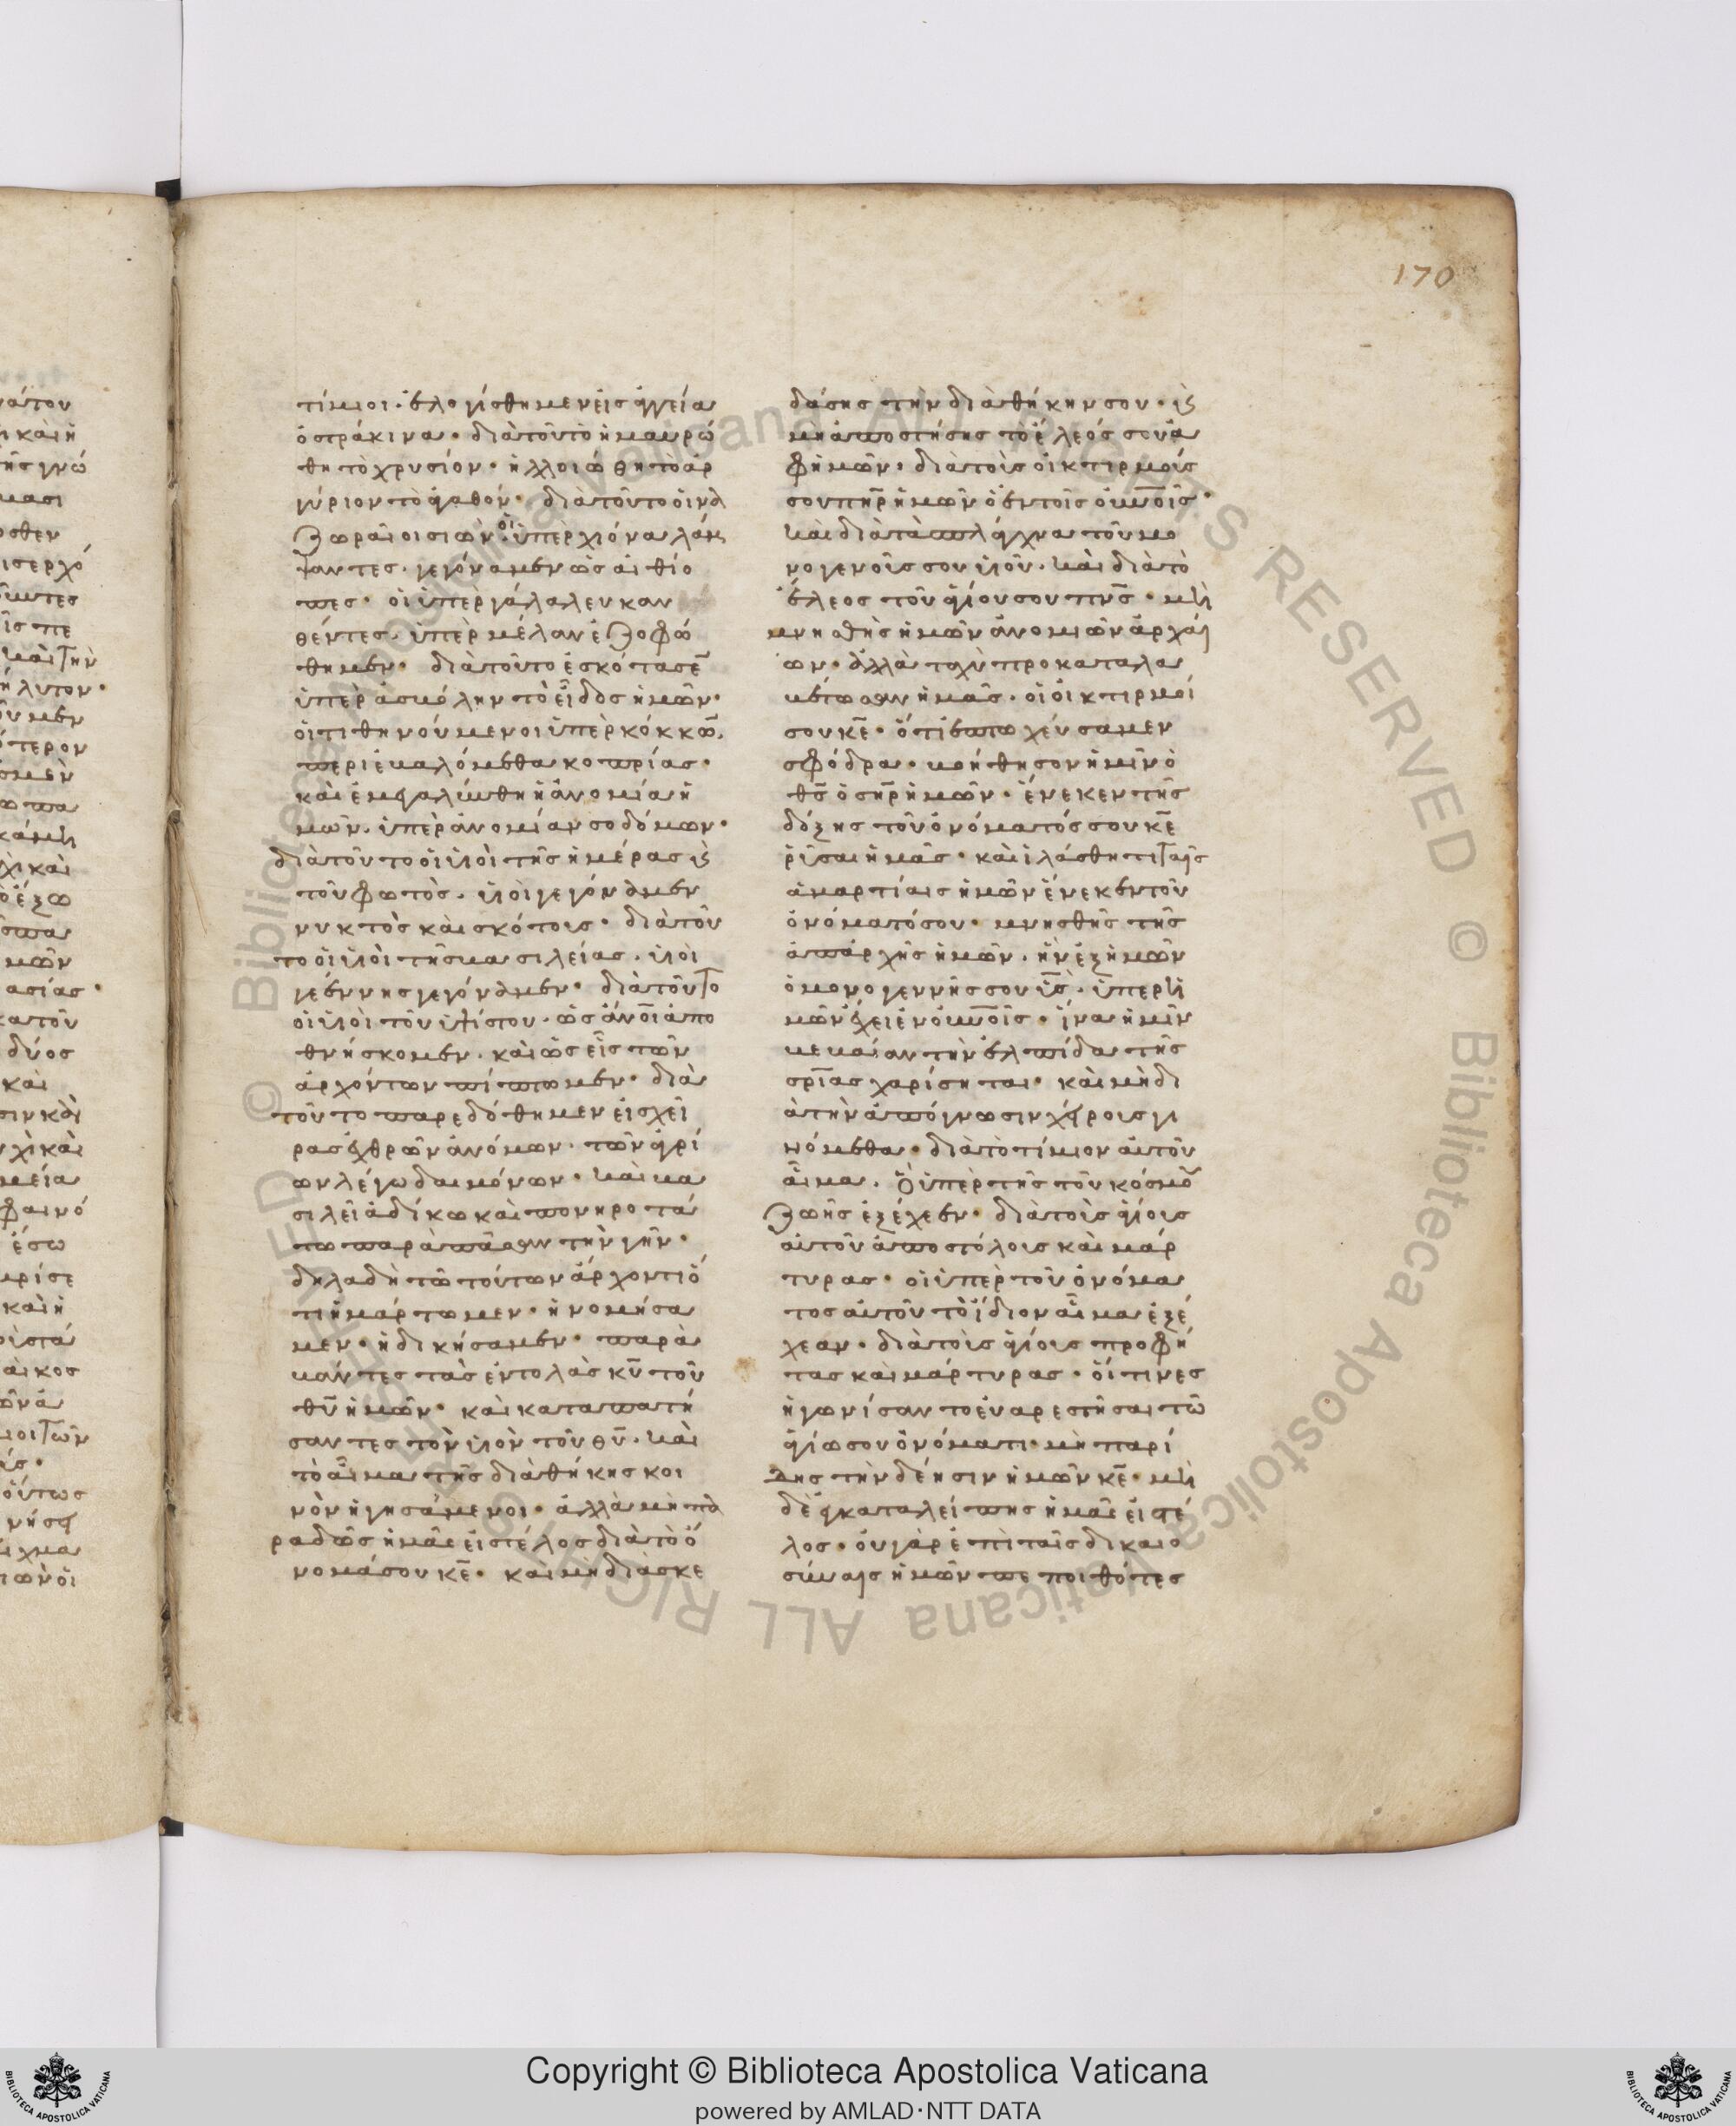 170
τίμιοι· ἐλογίσθημεν εἰς ἀγγεῖα
ὀστράκινα· διὰ τοῦτο ἠμαυρώ
θη τὸ χρυσίον· ἠλλοιώθη τὸ ἀρ
γύριον τὸ ἀγαθόν· διὰ τοῦτο οἱ να
ζωραῖοι σιών· οἱ ὑπὲρ χιόνα λάμ
ψαντες· γεγόναμεν ὡς αἰθίο
πες· οἱ ὑπὲρ γάλα λευκαν
θέντες· ὑπὲρ μέλαν ἐζοφώ
θημεν· διὰ τοῦτο ἐσκότασεν
ὑπὲρ ἀσβόλην τὸ εἶδος ἡμῶν·
οἱ τιθηνούμενοι ὑπὲρ κόκκων
περιεβαλόμεθα κοπρίας·
καὶ ἐμεγαλύνθη ἡ ἀνομία ἡ
μῶν· ὑπὲρ ἀνομίαν σοδόμων·
διὰ τοῦτο οἱ υἱοὶ τῆς ἡμέρας ϗ
τοῦ φωτὸς· υἱοὶ γεγόναμεν
νυκτὸς καὶ σκότους· διὰ τοῦ
το οἱ υἱοὶ τῆς βασιλείας· υἱοὶ
γεέννης γεγόναμεν· διὰ τοῦτο
οἱ υἱοὶ τοῦ ὑψίστου· ὡς ἄνοι ἀπο
θνήσκομεν· καὶ ὡς εἷς τῶν
ἀρχόντων πίπτομεν· διὰ
τοῦτο παρεδόθημεν εἰς χεῖ
ρας ἐχθρῶν ἀνόμων· τῶν ἀγρί
ων λέγω δαιμόνων· καὶ βα
σιλεῖ ἀδίκω καὶ πονηροτά
τω παρὰ πᾶσαν τὴν γῆν·
δηλαδὴ τῶ τούτων ἄρχοντι ὅ
τι ἡμάρτομεν· ἠνομήσα
μεν· ἠδικήσαμεν· παρα
βάντες τὰς ἐντολὰς κυ τοῦ
θυ ἡμῶν· καὶ καταπατή
σαντες τὸν υἱὸν τοῦ θυ· καὶ
τὸ αἷμα τῆς διαθήκης κοι
νὸν ἡγησάμενοι· ἀλλὰ μὴ πα
ραδῶς ἡμᾶς εἰς τέλος διὰ τὸ ὄ
νομά σου κε· καὶ μὴ διασκε
δάσης τὴν διαθήκην σου· ϗ
μὴ ἀποστήσης τὸ ἔλεός σου ἀ
φ ἡμῶν· διὰ τοὺς οἰκτιρμούς
σου πηρ ἡμῶν ὁ ἐν τοῖς οὐνοῖς·
καὶ διὰ τὰ σπλάγχνα τοῦ μο
νογενοῦς σου υἱοῦ· καὶ διὰ τὸ
ἔλεος τοῦ ἁγίου σου πνς· μὴ
μνησθῆς ἡμῶν ἀνομιῶν ἀρχαί
ων· ἀλλὰ ταχὺ προκαταλα
βέτωσαν ἡμᾶς· οἱ οἰκτιρμοί
σου κε· ὅτι ἐπτωχεύσαμεν
σφόδρα· βοήθησον ἡμῖν ὁ
θς ὁ σηρ ἡμῶν· ἕνεκεν τῆς
δόξης τοῦ ὀνόματός σου κε
ῥῦσαι ἡμᾶς· καὶ ἱλάσθητι ταῖς
ἁμαρτίαις ἡμῶν ἕνεκεν τοῦ
ὀνόματός σου· μνησθῆς τῆς
ἀπαρχῆς ἡμῶν· ἣν ἐξ ἡμῶν
ὁ μονογεννής σου υς· ὑπὲρ ἡ
μῶν ἔχει ἐν οὐνοῖς· ἵνα ἡμῖν
βεβαίαν τὴν ἐλπίδα τῆς
σριας χαρίσηται· καὶ μὴ δι
ὰ τὴν ἀπόγνωσιν χείρους γι
νόμεθα· διὰ τὸ τίμιον αὐτοῦ
αἷμα· ὃ ὑπὲρ τῆς τοῦ κόσμου
ζωῆς ἐξέχεεν· διὰ τοὺς ἁγίους
αὐτοῦ ἀποστόλους καὶ μάρ
τυρας· οἳ ὑπὲρ τοῦ ὀνόμα
τος αὐτοῦ τὸ ἴδιον αἷμα ἐξέ
χεαν· διὰ τοὺς ἁγίους προφή
τας καὶ μάρτυρας· οἵτινες
ἠγωνίσαντο εὐαρεστῆσαι τῶ
ἁγίω σου ὀνόματι· μὴ παρί
δης τὴν δέησιν ἡμῶν κε· μὴ
δὲ ἐγκαταλείπης ἡμᾶς εἰς τέ
λος· οὐ γὰρ ἐπὶ ταῖς δικαιο
σύναις ἡμῶν πεποιθότες
Copyright © Biblioteca Apostolica Vaticana
powered by AMLAD·NTT DATA